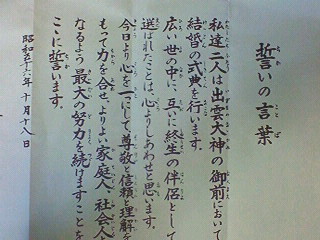 誓いの言葉
私達二人は出雲大神の御前において
結婚の式典を行います。
広い世の中に、互いに終生の伴侶として
選ばれたことは、心よりしあわせと思います。
今日より心を一つにして尊敬と信頼と理解を
もって力を合せ、よりよい家庭人、社会人
なるよう最大の努力を続けますことを
ここに誓います。
昭和五十六年十月十八日